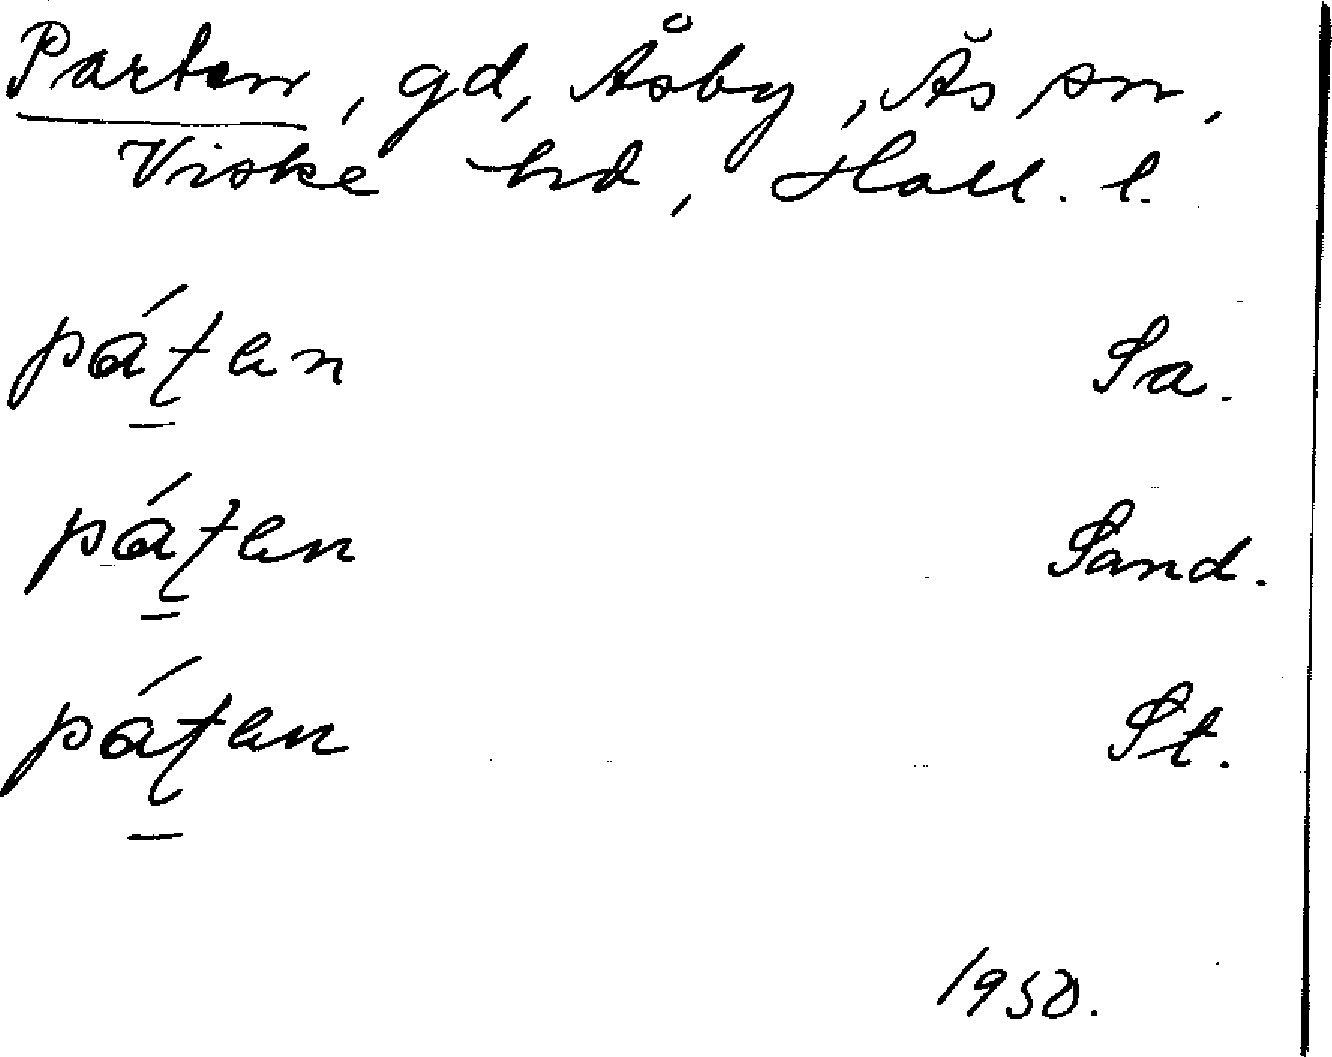 Parten, gd, Åsby, Ås sn,
Viske hd, Hall. l.
páʈen Sa.
páʈen Sand.
páʈen St.
1950.